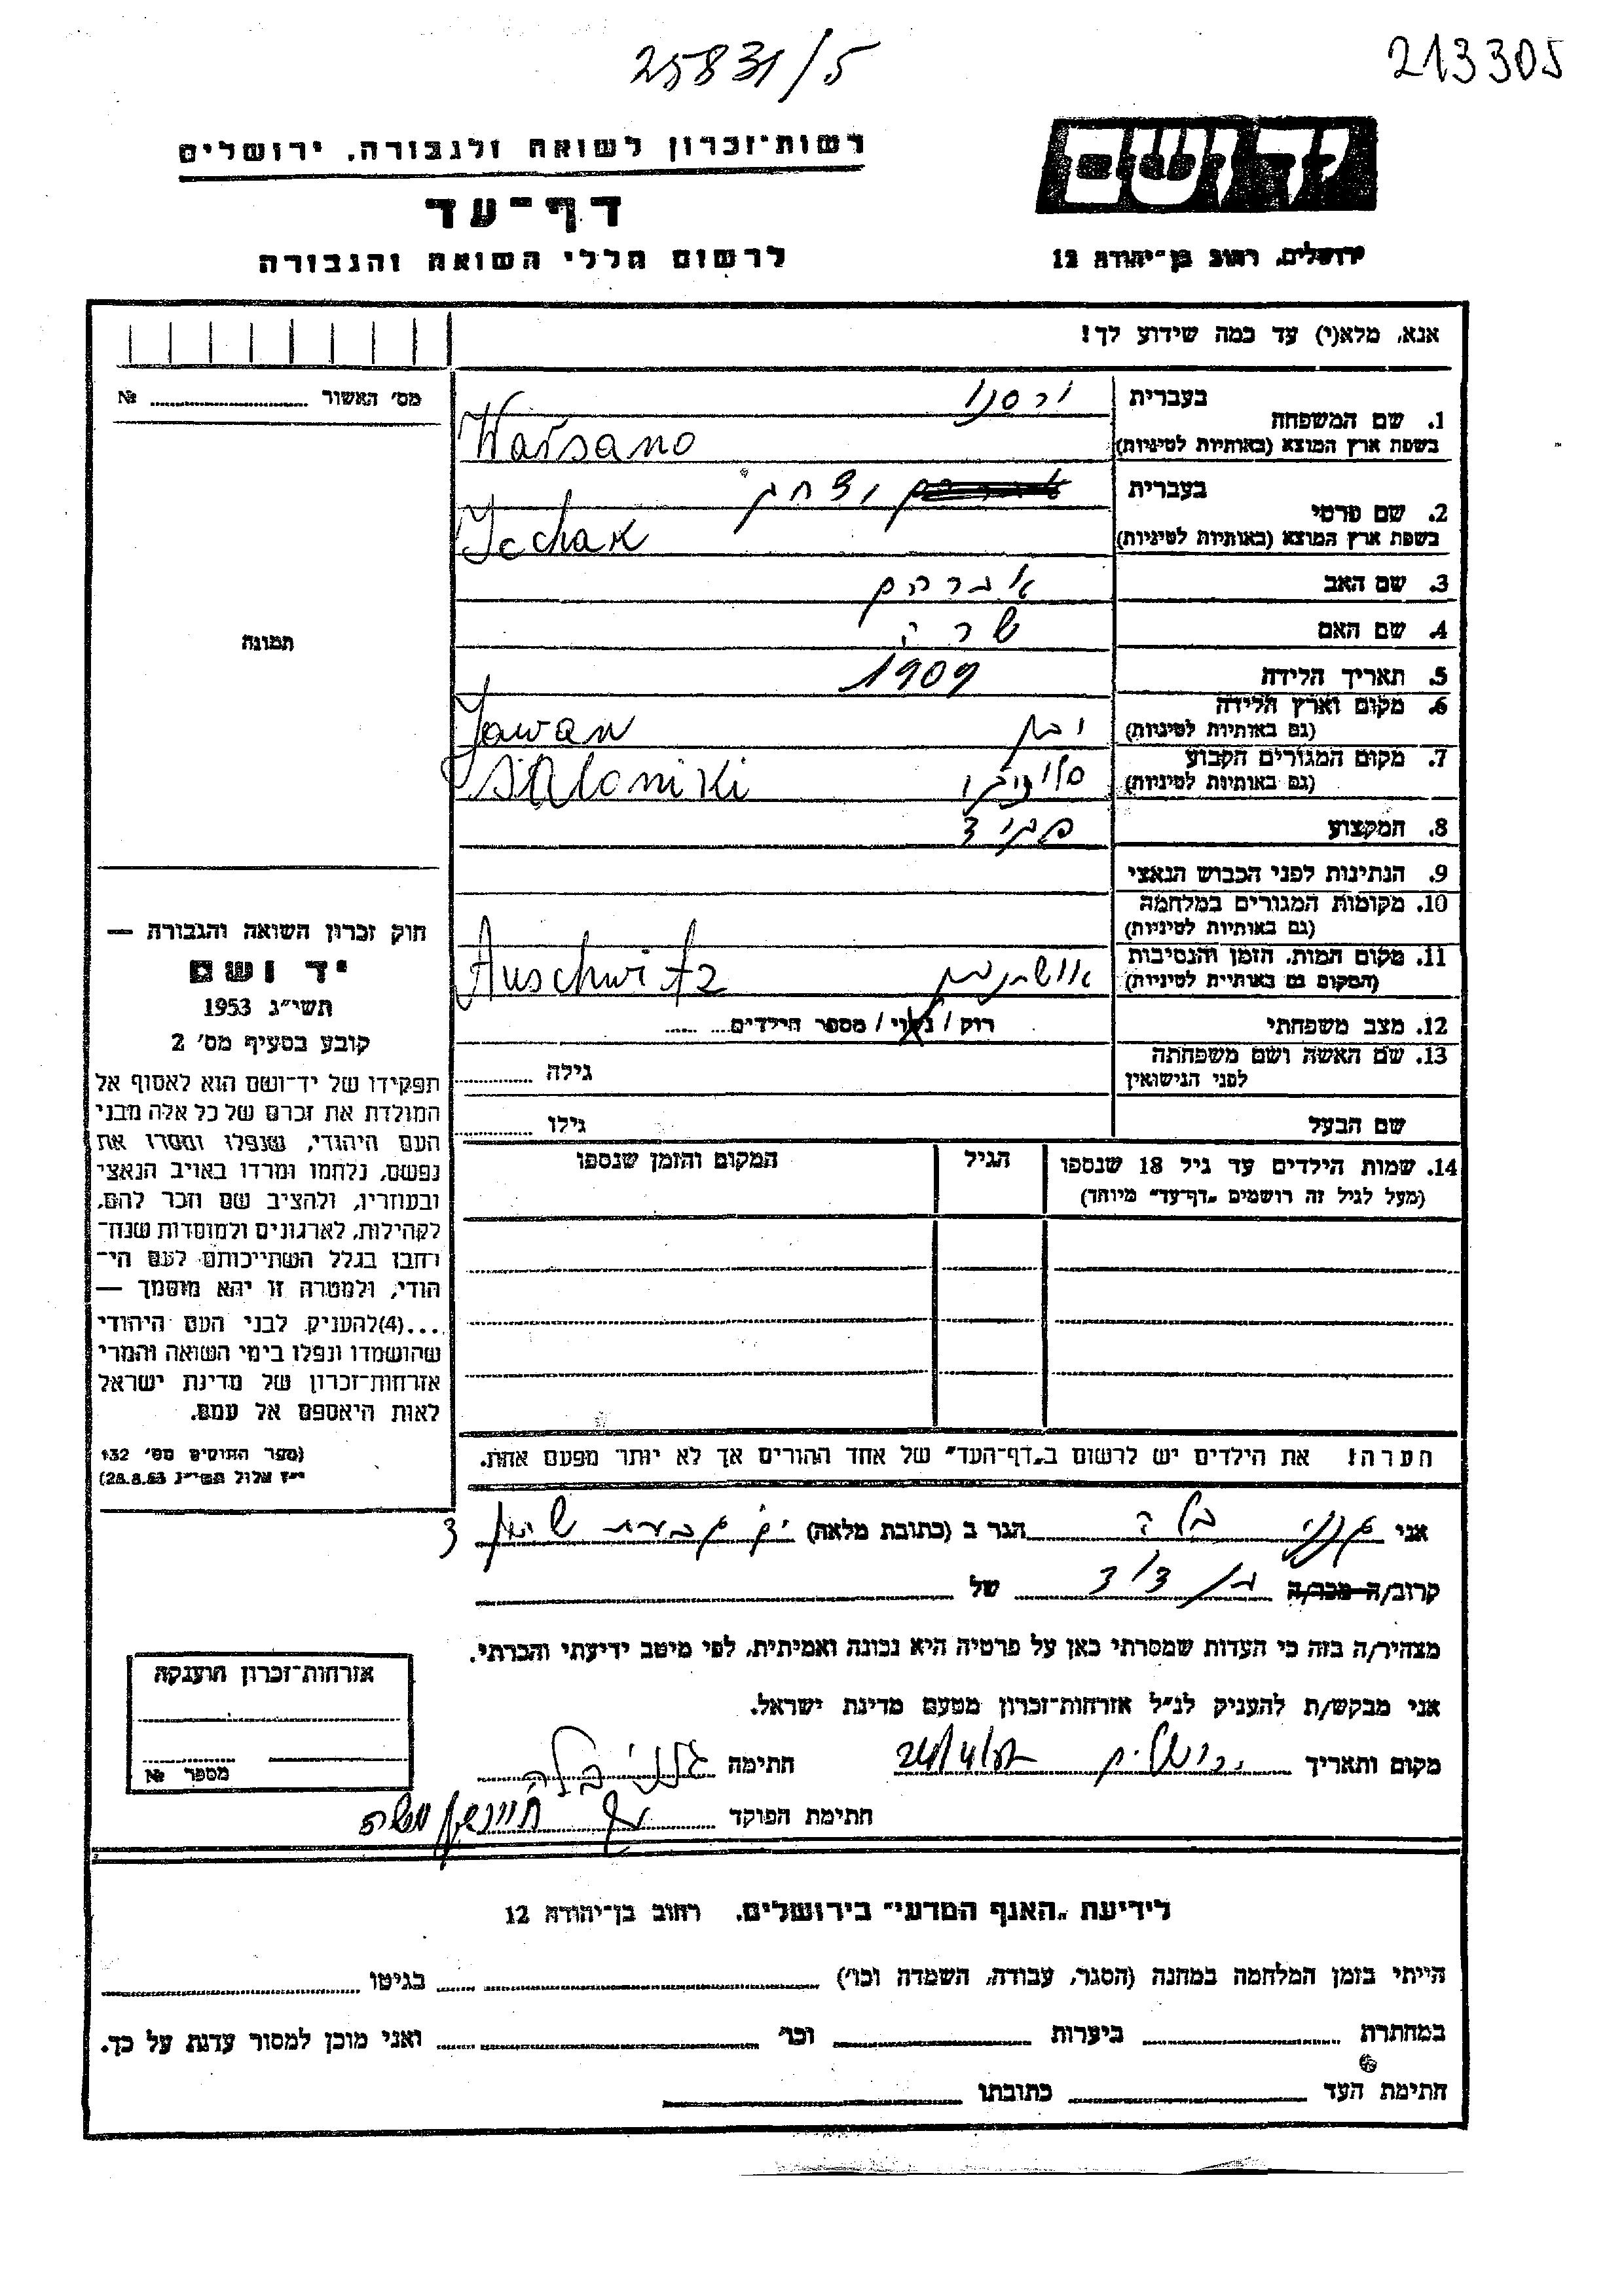 25831/5
213305
רשות־זכרון לשואה ולגבורה, ירושלים
יד ושם
דף־עד
לרשום חללי השואה והגבורה
ירושלים, רחוב בן־יהודה 12
אנא, מלא(י) עד כמה שידוע לך!
מס׳ האשור № 
1. שם המשפחה בעברית ורסנו
בשפת ארץ המוצא (באותיות לטיניות) Warsano
2. שם פרטי בעברית יצחק
בשפת ארץ המוצא (באותיות לטיניות) Icchak
3. שם האב אברהם
4. שם האם שרה
5. תאריך הלידה 1909
6. מקום וארץ הלידה (גם באותיות לטיניות) יון Jawan
7. מקום המגורים הקבוע (גם באותיות לטיניות) סלוניקי SALoniKi
8. המקצוע
9. הנתינות לפני הכבוש הנאצי
10. מקומות המגורים במלחמה (גם באותיות לטיניות)
11. מקום המות, הזמן והנסיבות (המקום גם באותיות לטיניות) Auschwitz
12. מצב משפחתי רוק / נשוי / מספר הילדים
13. שם האשה ושם משפחתה לפני הנישואין גילה
שם הבעל גילו
14. שמות הילדים עד גיל 18 שנספו הגיל המקום והזמן שנספו
(מעל לגיל זה רושמים „דף־עד״ מיוחד)
תמונה
חוק זכרון השואה והגבורה —
יד ושם
תשי״ג 1953
קובע בסעיף מס׳ 2
תפקידו של יד־ושם הוא לאסוף אל
המולדת את זכרם של כל אלה מבני
העם היהודי, שנפלו ומסרו את
נפשם, נלחמו ומרדו באויב הנאצי
ובעוזריו, ולהציב שם וזכר להם,
לקהילות, לארגונים ולמוסדות שנח־
רחבו בגלל השתייכותם לעם הי־
הודי, ולמטרה זו יהא מוסמך —
...(4)להעניק לבני העם היהודי
שהושמדו ונפלו בימי השואה והמרי
אזרחות־זכרון של מדינת ישראל
לאות היאספם אל עמם.
(ספר החוקים מס׳ 132
י״ז אלול תשי״ג 28.8.53)
הערה: את הילדים יש לרשום ב„דף־העד״ של אחד ההורים אך לא יותר מפעם אחת.
אני בלה הגר ב (כתובת מלאה) 3
קרוב/ה מכר/ה של
מצהיר/ה בזה כי העדות שמסרתי כאן על פרטיה היא נכונה ואמיתית, לפי מיטב ידיעתי והכרתי.
אני מבקש/ת להעניק לנ״ל אזרחות־זכרון מטעם מדינת ישראל.
מקום ותאריך ירושלים חתימה בלה
חתימת הפוקד
אזרחות־זכרון הוענקה
מספר №
לידיעת „האגף המדעי״ בירושלים, רחוב בן־יהודה 12
הייתי בזמן המלחמה במחנה (הסגר, עבודה, השמדה וכו׳) בגיטו
במחתרת ביערות וכו׳ ואני מוכן למסור עדות על כך.
חתימת העד כתובתו